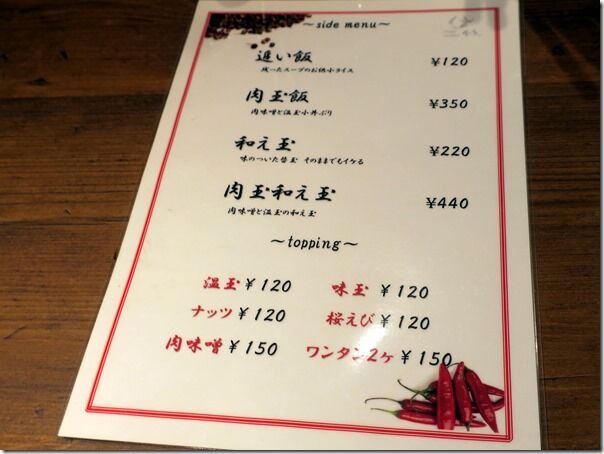 ～side menu～
追い飯 ¥120
残ったスープのお供小ライス
肉玉飯 ¥350
肉味噌と温玉小丼ぶり
和え玉 ¥220
味のついた替玉 そのままでもイケる
肉玉和え玉 ¥440
肉味噌と温玉の和え玉
～topping～
温玉 ¥120 味玉 ¥120
ナッツ ¥120 桜えび ¥120
肉味噌 ¥150 ワンタン2ヶ ¥150